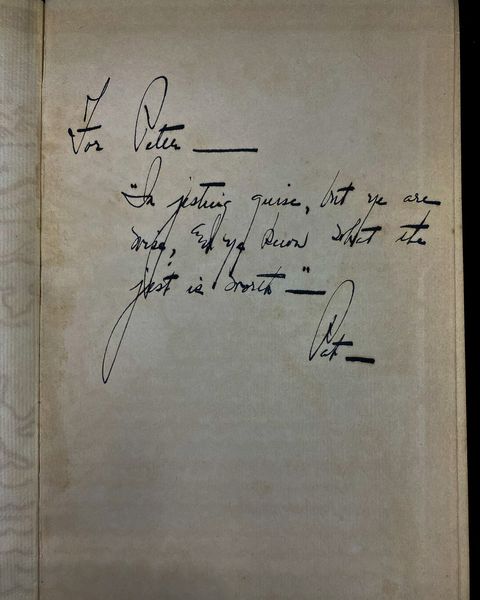 For Peter —
"In jesting guise, but ye are
wise, And ye know what the
jest is worth —"
Pat —